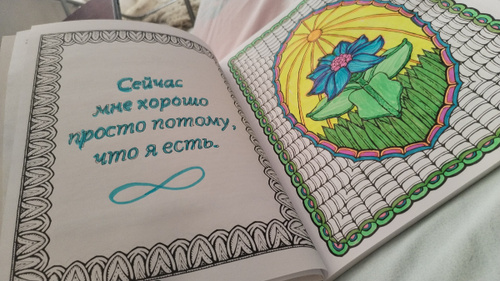 Сейчас
мне хорошо
просто потому,
что я есть.